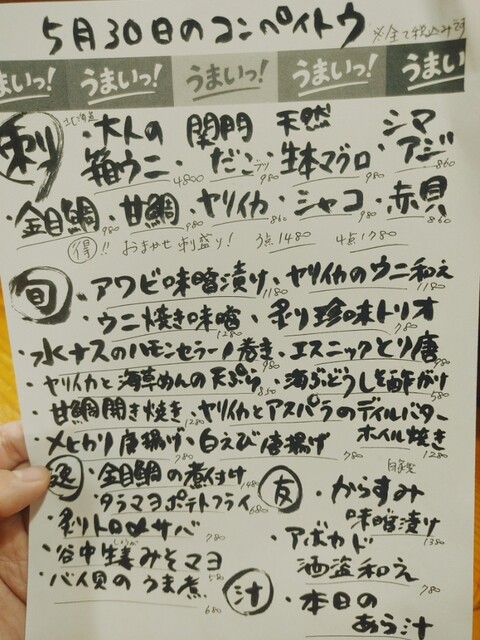 5月30日のコンペイトウ ※全て税込みです
うまいっ! うまいっ! うまいっ! うまいっ! うまい
刺
北海道
・大人の箱ウニ 4800
・関門だこ 980
・天然生本マグロ 980
・シマアジ 860
・金目鯛 980 ・甘鯛 980 ・ヤリイカ 860 ・シャコ 980 ・赤貝 860
得!! おまかせ刺盛り! 3点1480 4点1780
旬
・アワビ味噌漬け 1180 ・ヤリイカのウニ和え 1180
・ウニ焼き味噌 1280 ・炙り珍味トリオ 780
・水ナスのハモンセラーノ巻き 980 ・エスニックとり唐 980
・ヤリイカと海草めんの天ぷら 850 ・海ぶどうしそ酢がけ 580
・甘鯛開き焼き 1280 ・ヤリイカとアスパラのディルバターホイル焼き 1280
・メヒカリ唐揚げ 780 ・白えび唐揚げ 780
・金目鯛の煮付け 1480
・タラマヨポテトフライ 680
・炙りトロ〆サバ 780
・谷中生姜みそマヨ 580
・バイ貝のうま煮 680
友
自家製
・からすみ味噌漬け 1380
・アボカド酒盗和え 780
汁
・本日のあら汁